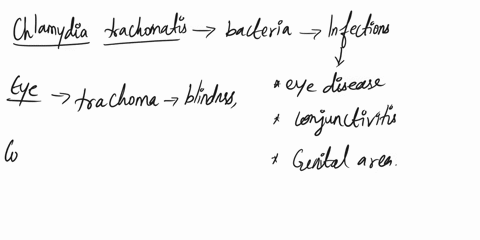 Chlamydia trachomatis → bacteria → Infections
* eye disease
Eye → trachoma → blindnss,
* conjunctivitis
Co
* Genital area.